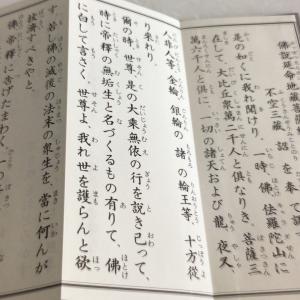 佛説延命地藏
不空三藏 詔を奉て
是の如くに我れ聞けり、時佛佉羅陀山に
在して、大比丘衆萬二千人と俱なりき菩薩三
萬六千人と俱に、一切の諸天および龍夜叉
人非人等金輪、銀輪の諸の輪王等、十方從
り來れり
爾の時、世尊、是の大乘無依の行を説き已って、
時に帝釋の無垢生と名づくるもの有りて、佛
に白して言さく、世尊よ、我れ世を護らんと欲
す、若し佛の滅後の法末の衆生を、當に何んが
拔濟すべきやと、
佛、帝釋に告げたまわく、